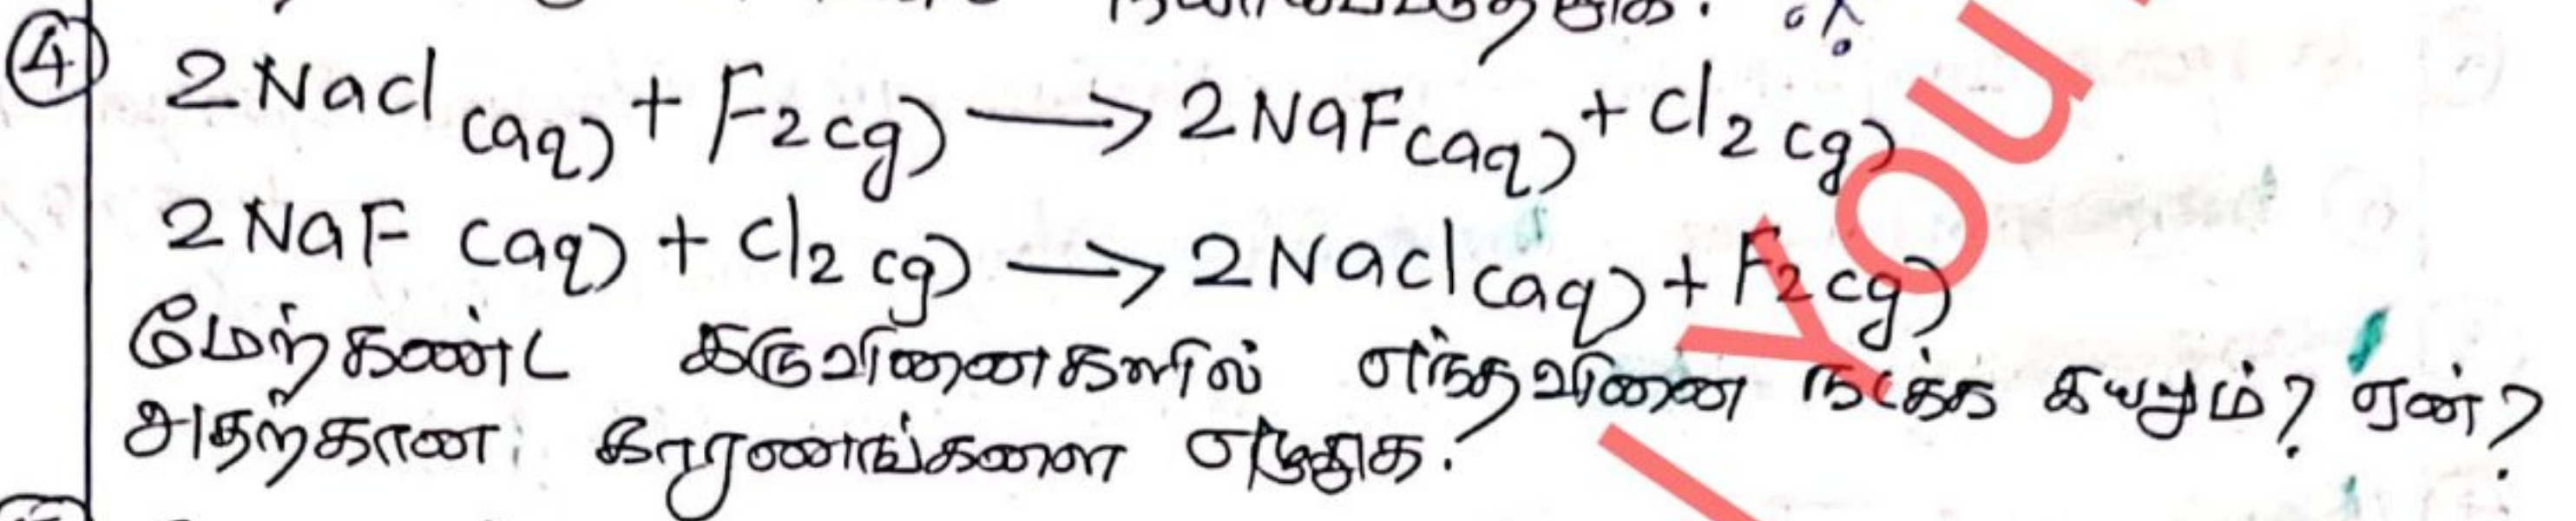 ④ 2Nacl (aq) + F2 (g) → 2NaF (aq) + Cl2 (g)
2NaF (aq) + Cl2 (g) → 2Nacl (aq) + F2 (g)
மேற்கண்ட இருவினைகளில் எந்தவினை நடக்க இயலும்? ஏன்?
அதற்கான காரணங்களை எழுதுக.
You